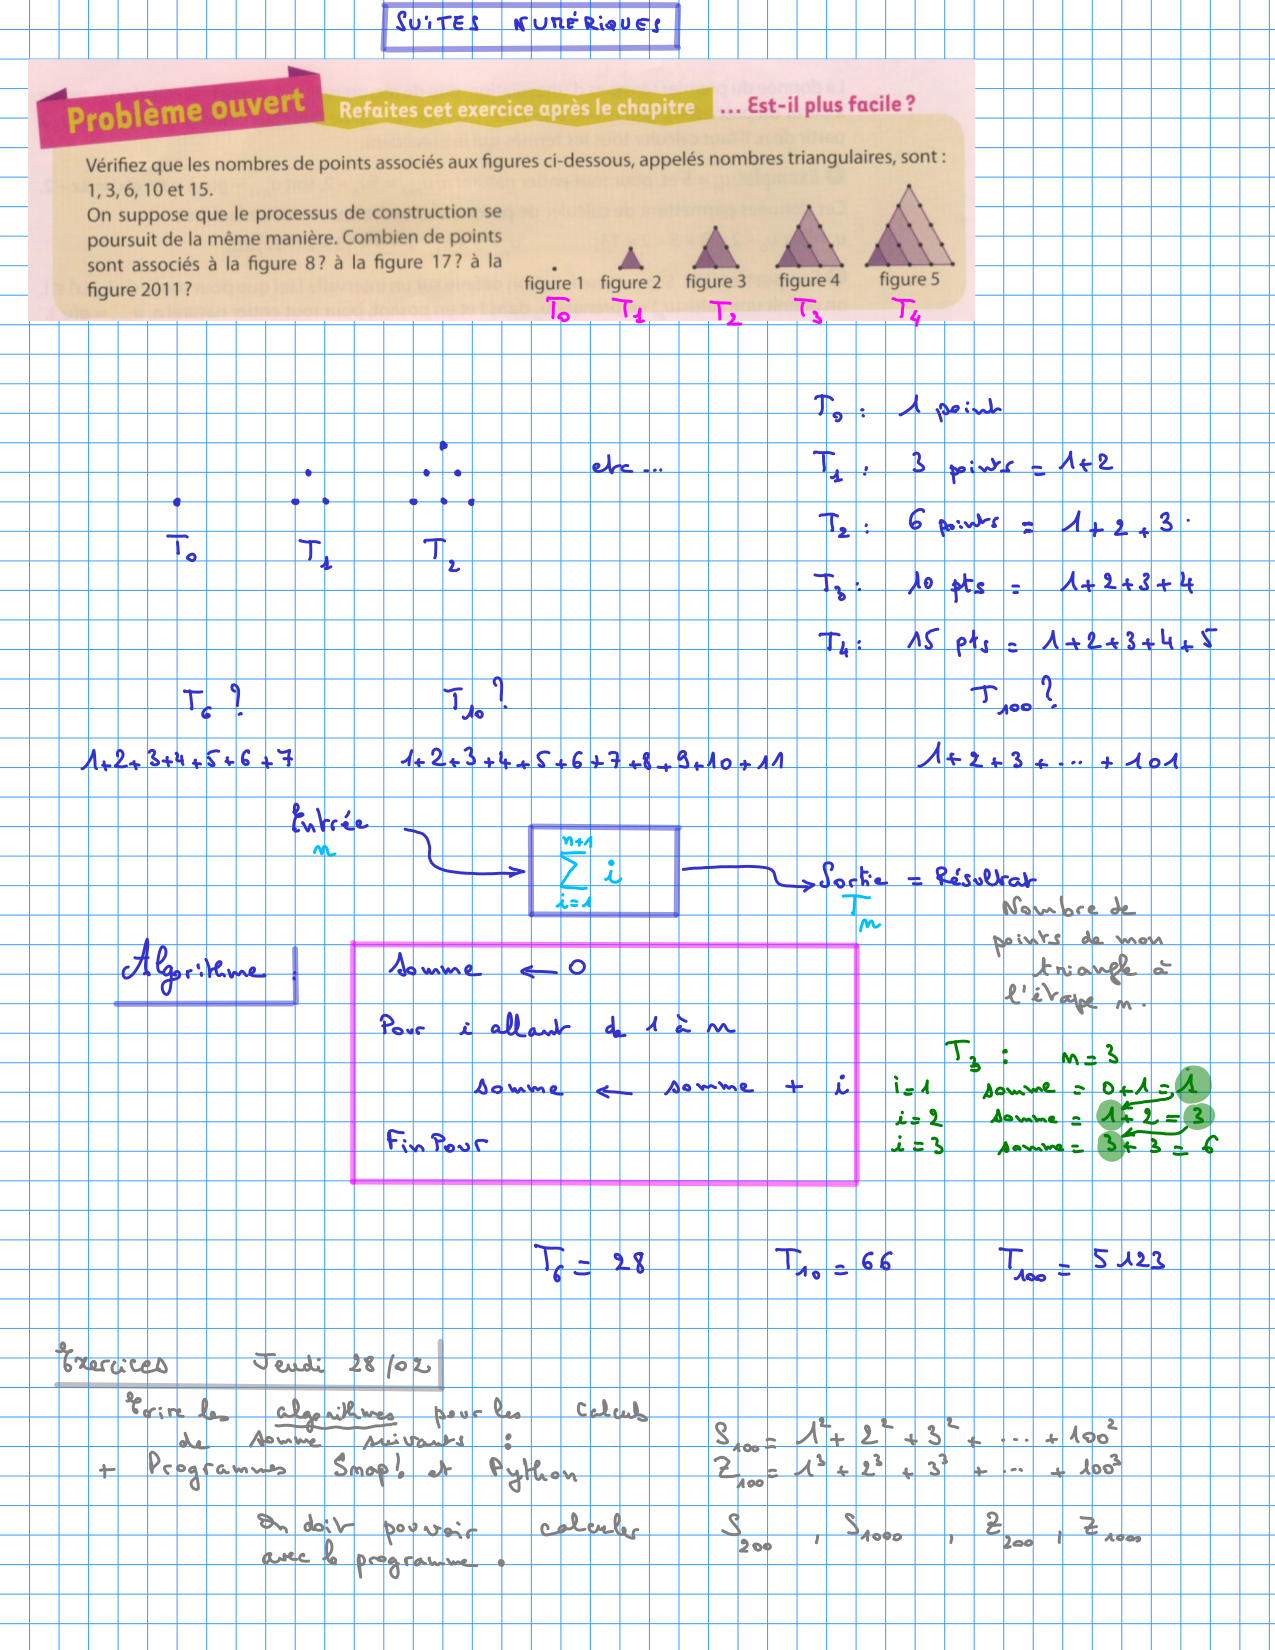 SUITES NUMÉRIQUES
Problème ouvert Refaites cet exercice après le chapitre ... Est-il plus facile ?
Vérifiez que les nombres de points associés aux figures ci-dessous, appelés nombres triangulaires, sont :
1, 3, 6, 10 et 15.
On suppose que le processus de construction se
poursuit de la même manière. Combien de points
sont associés à la figure 8 ? à la figure 17 ? à la
figure 2011 ?
figure 1 figure 2 figure 3 figure 4 figure 5
T₀ T₁ T₂ T₃ T₄
T₀ : 1 point
etc ...
T₁ : 3 points = 1+2
T₂ : 6 points = 1+2+3
T₀ T₁ T₂
T₃ : 10 pts = 1+2+3+4
T₄ : 15 pts = 1+2+3+4+5
T₆ ? T₁₀ ? T₁₀₀ ?
1+2+3+4+5+6+7 1+2+3+4+5+6+7+8+9+10+11 1+2+3+...+101
Entrée
n
n+1
∑ i
i=1
Sortie = Résultat
Tₙ
Nombre de
points de mon
triangle à
l'étape n.
Algorithme :
Somme ← 0
Pour i allant de 1 à n
somme ← somme + i
Fin Pour
T₃ : n = 3
i=1 somme = 0+1 = 1
i=2 somme = 1+2 = 3
i=3 somme = 3+3 = 6
T₆ = 28 T₁₀ = 66 T₁₀₀ = 5123
Exercices Jeudi 28/02
Ecrire les algorithmes pour les calculs
de somme suivants :
+ Programmes Snap! et Python
S₁₀₀ = 1² + 2² + 3² + ... + 100²
Z₁₀₀ = 1³ + 2³ + 3³ + ... + 100³
On doit pouvoir calculer S₂₀₀ , S₁₀₀₀ , Z₂₀₀ , Z₁₀₀₀
avec le programme.